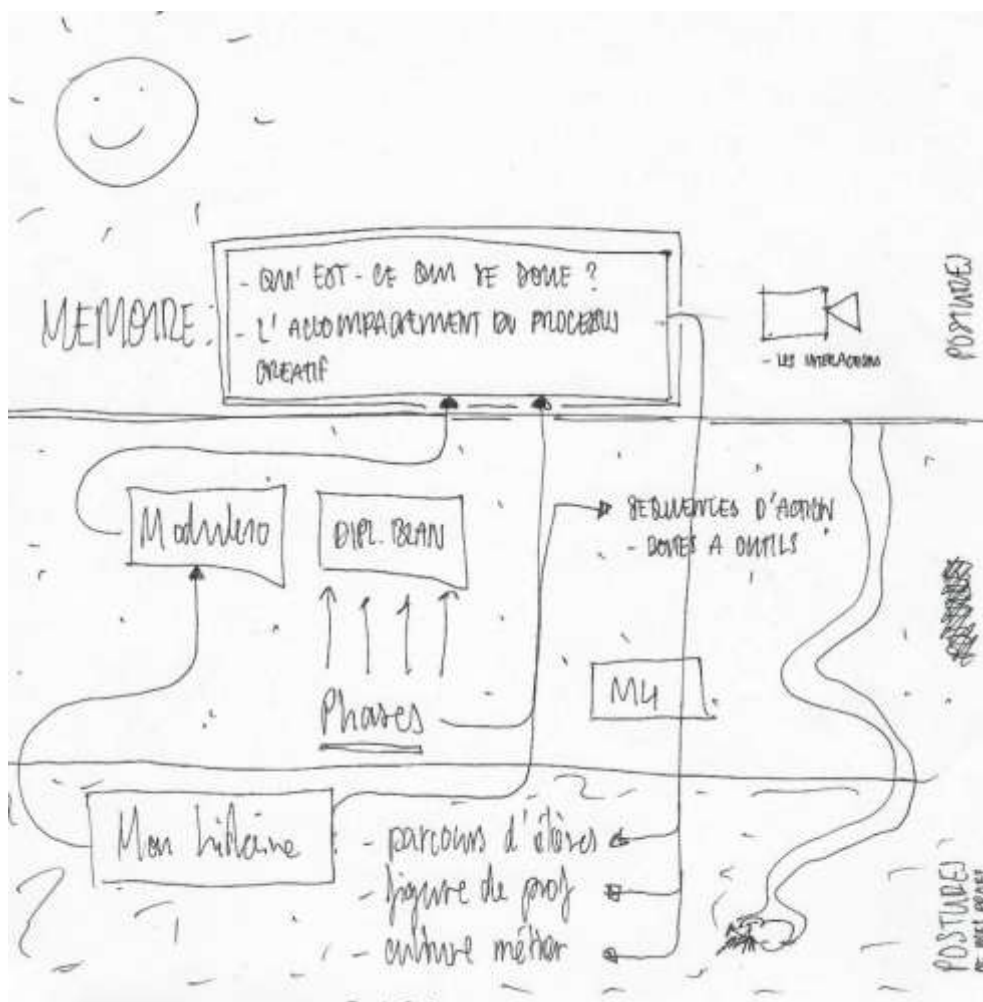 - QU'EST-CE QUI SE JOUE ?
MEMOIRE :
- L'ACCOMPAGNEMENT DU PROCESSUS
CREATIF
- LES INTERACTIONS
POSTURES
Modulo
DIPL. BLAN
SEQUENCES D'ACTION
- BOITES A OUTILS
M4
Phases
Mon histoire :
- parcours d'élèves
- figure de prof
- culture métier
POSTURES
DE MES PROFS